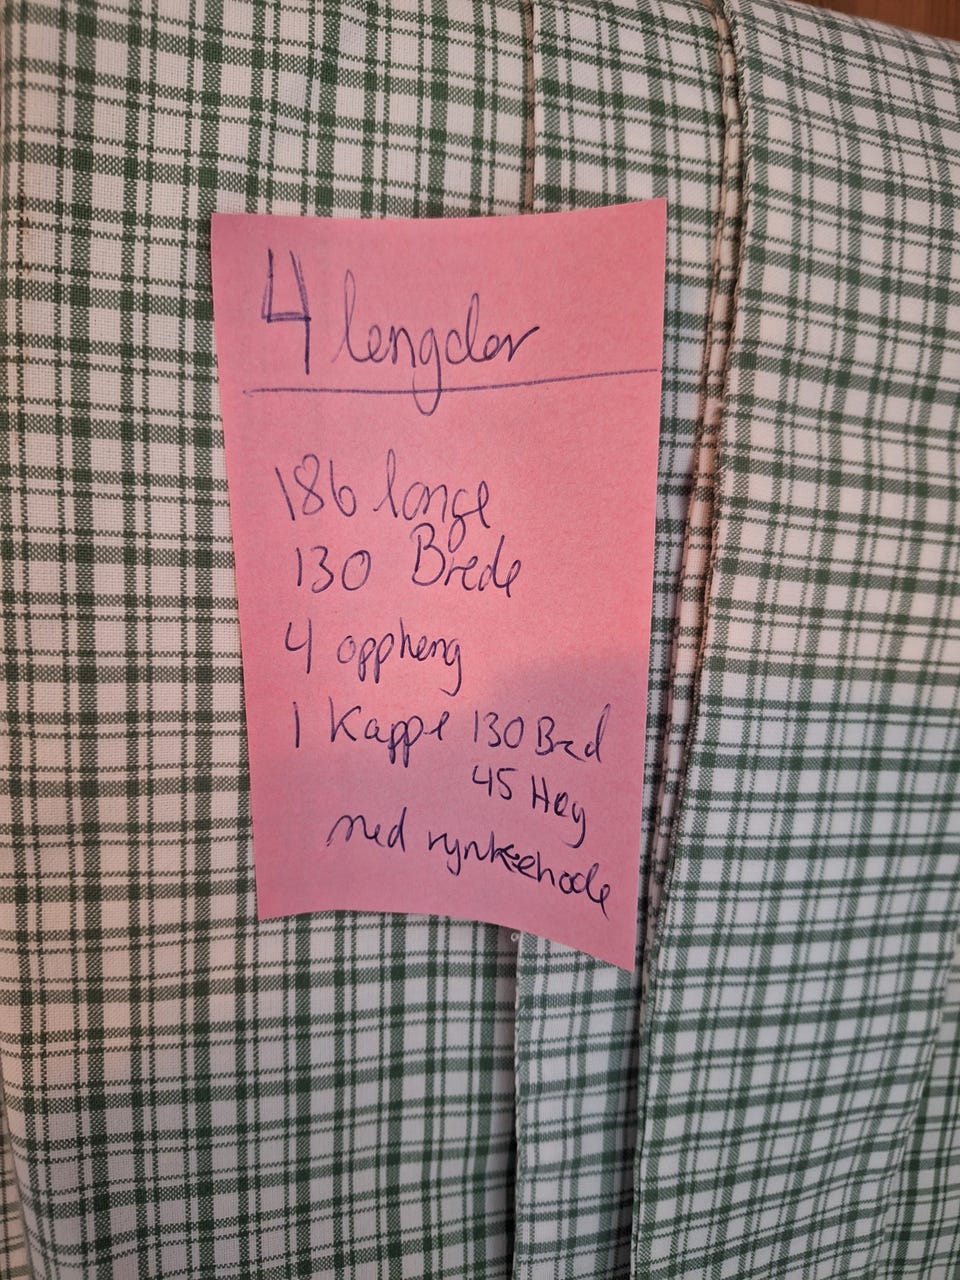 4 lengder
186 lange
130 Brede
4 oppheng
1 Kappe 130 Bred
45 Høy
med rynkehode